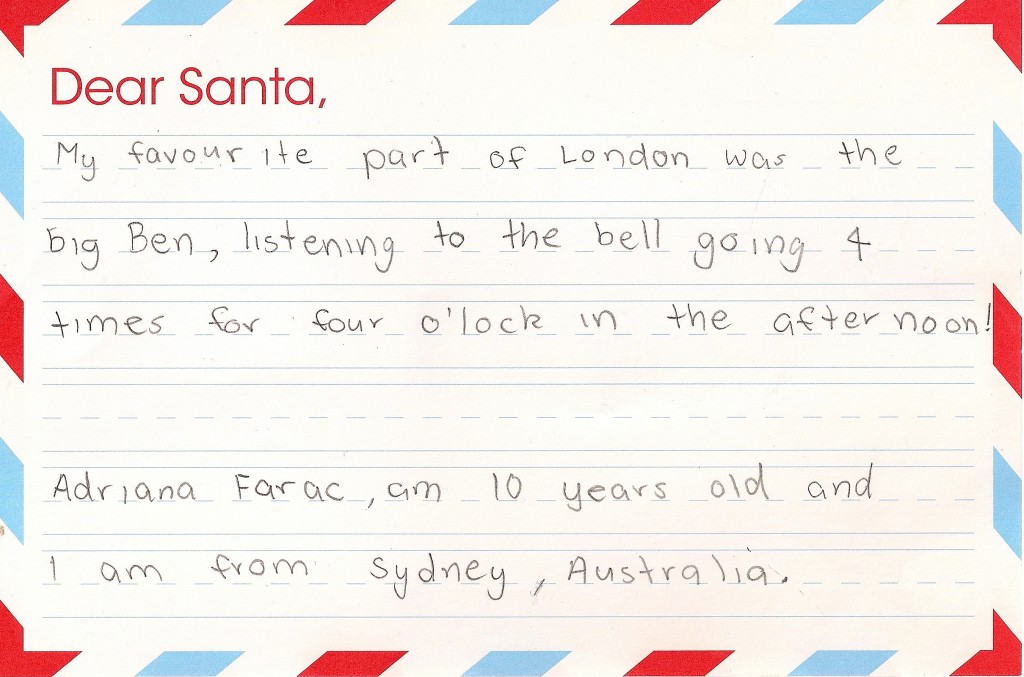 Dear Santa,
My favourite part of London was the
big Ben, listening to the bell going 4
times for four o'lock in the afternoon!
Adriana Farac, am 10 years old and
I am from Sydney, Australia.